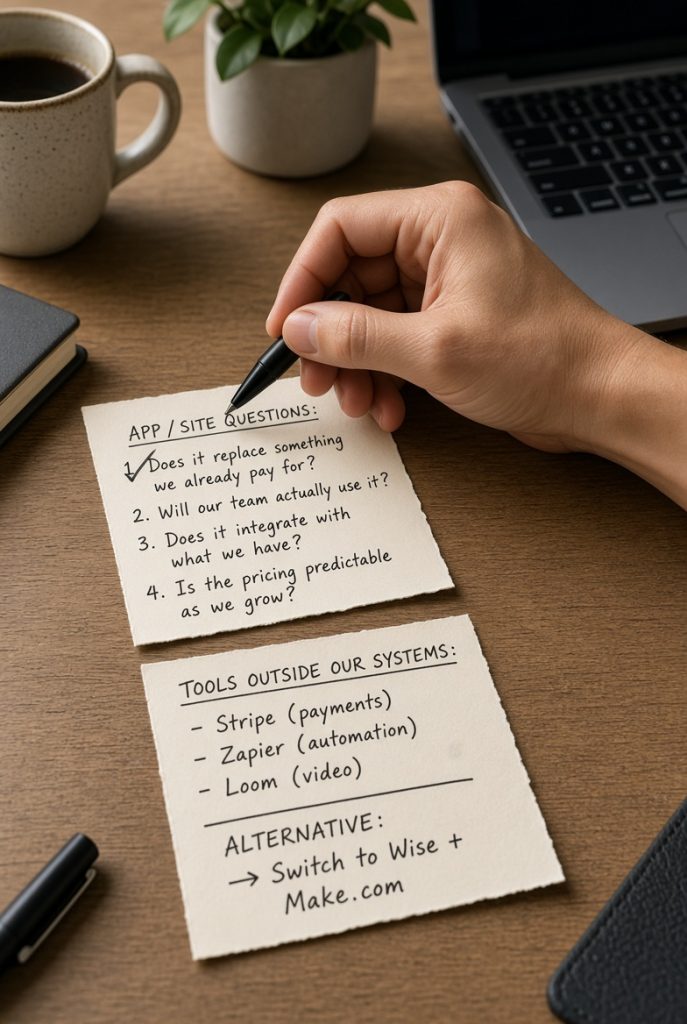 APP / SITE QUESTIONS:
1. Does it replace something
we already pay for?
2. Will our team actually use it?
3. Does it integrate with
what we have?
4. Is the pricing predictable
as we grow?
TOOLS OUTSIDE OUR SYSTEMS:
- Stripe (payments)
- Zapier (automation)
- Loom (video)
ALTERNATIVE:
→ Switch to Wise +
Make.com